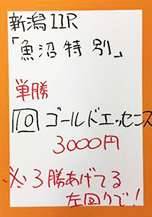 新潟11R
「魚沼特別」
単勝
10 ゴールドエッセンス
3000円
※3勝あげてる
左回りで!